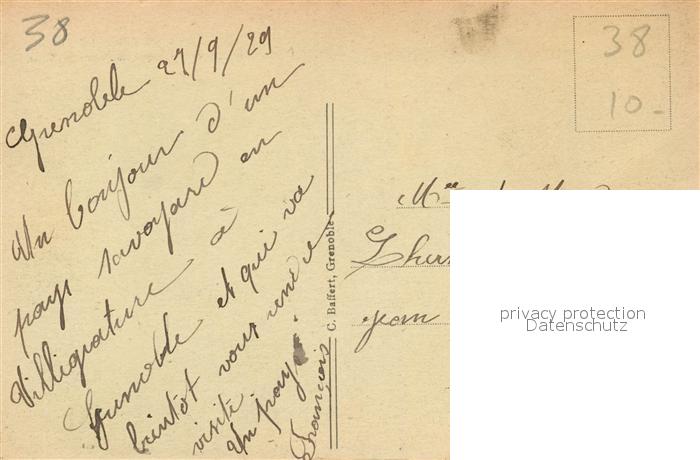 38
Grenoble 27/9/29
Un bonjour d'un
pays savoyard en
Villégiature à
Grenoble et qui va
bientôt vous rendre
visite.
Un pays.
François
C. Baffert, Grenoble
38
10-
Mlle
jean
privacy protection
Datenschutz